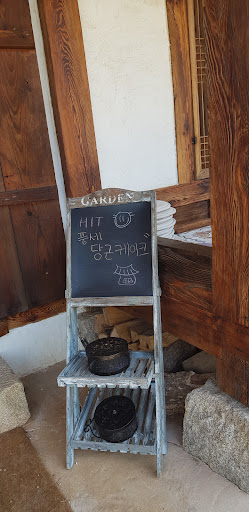 GARDEN
HIT
퐁세
당근케이크